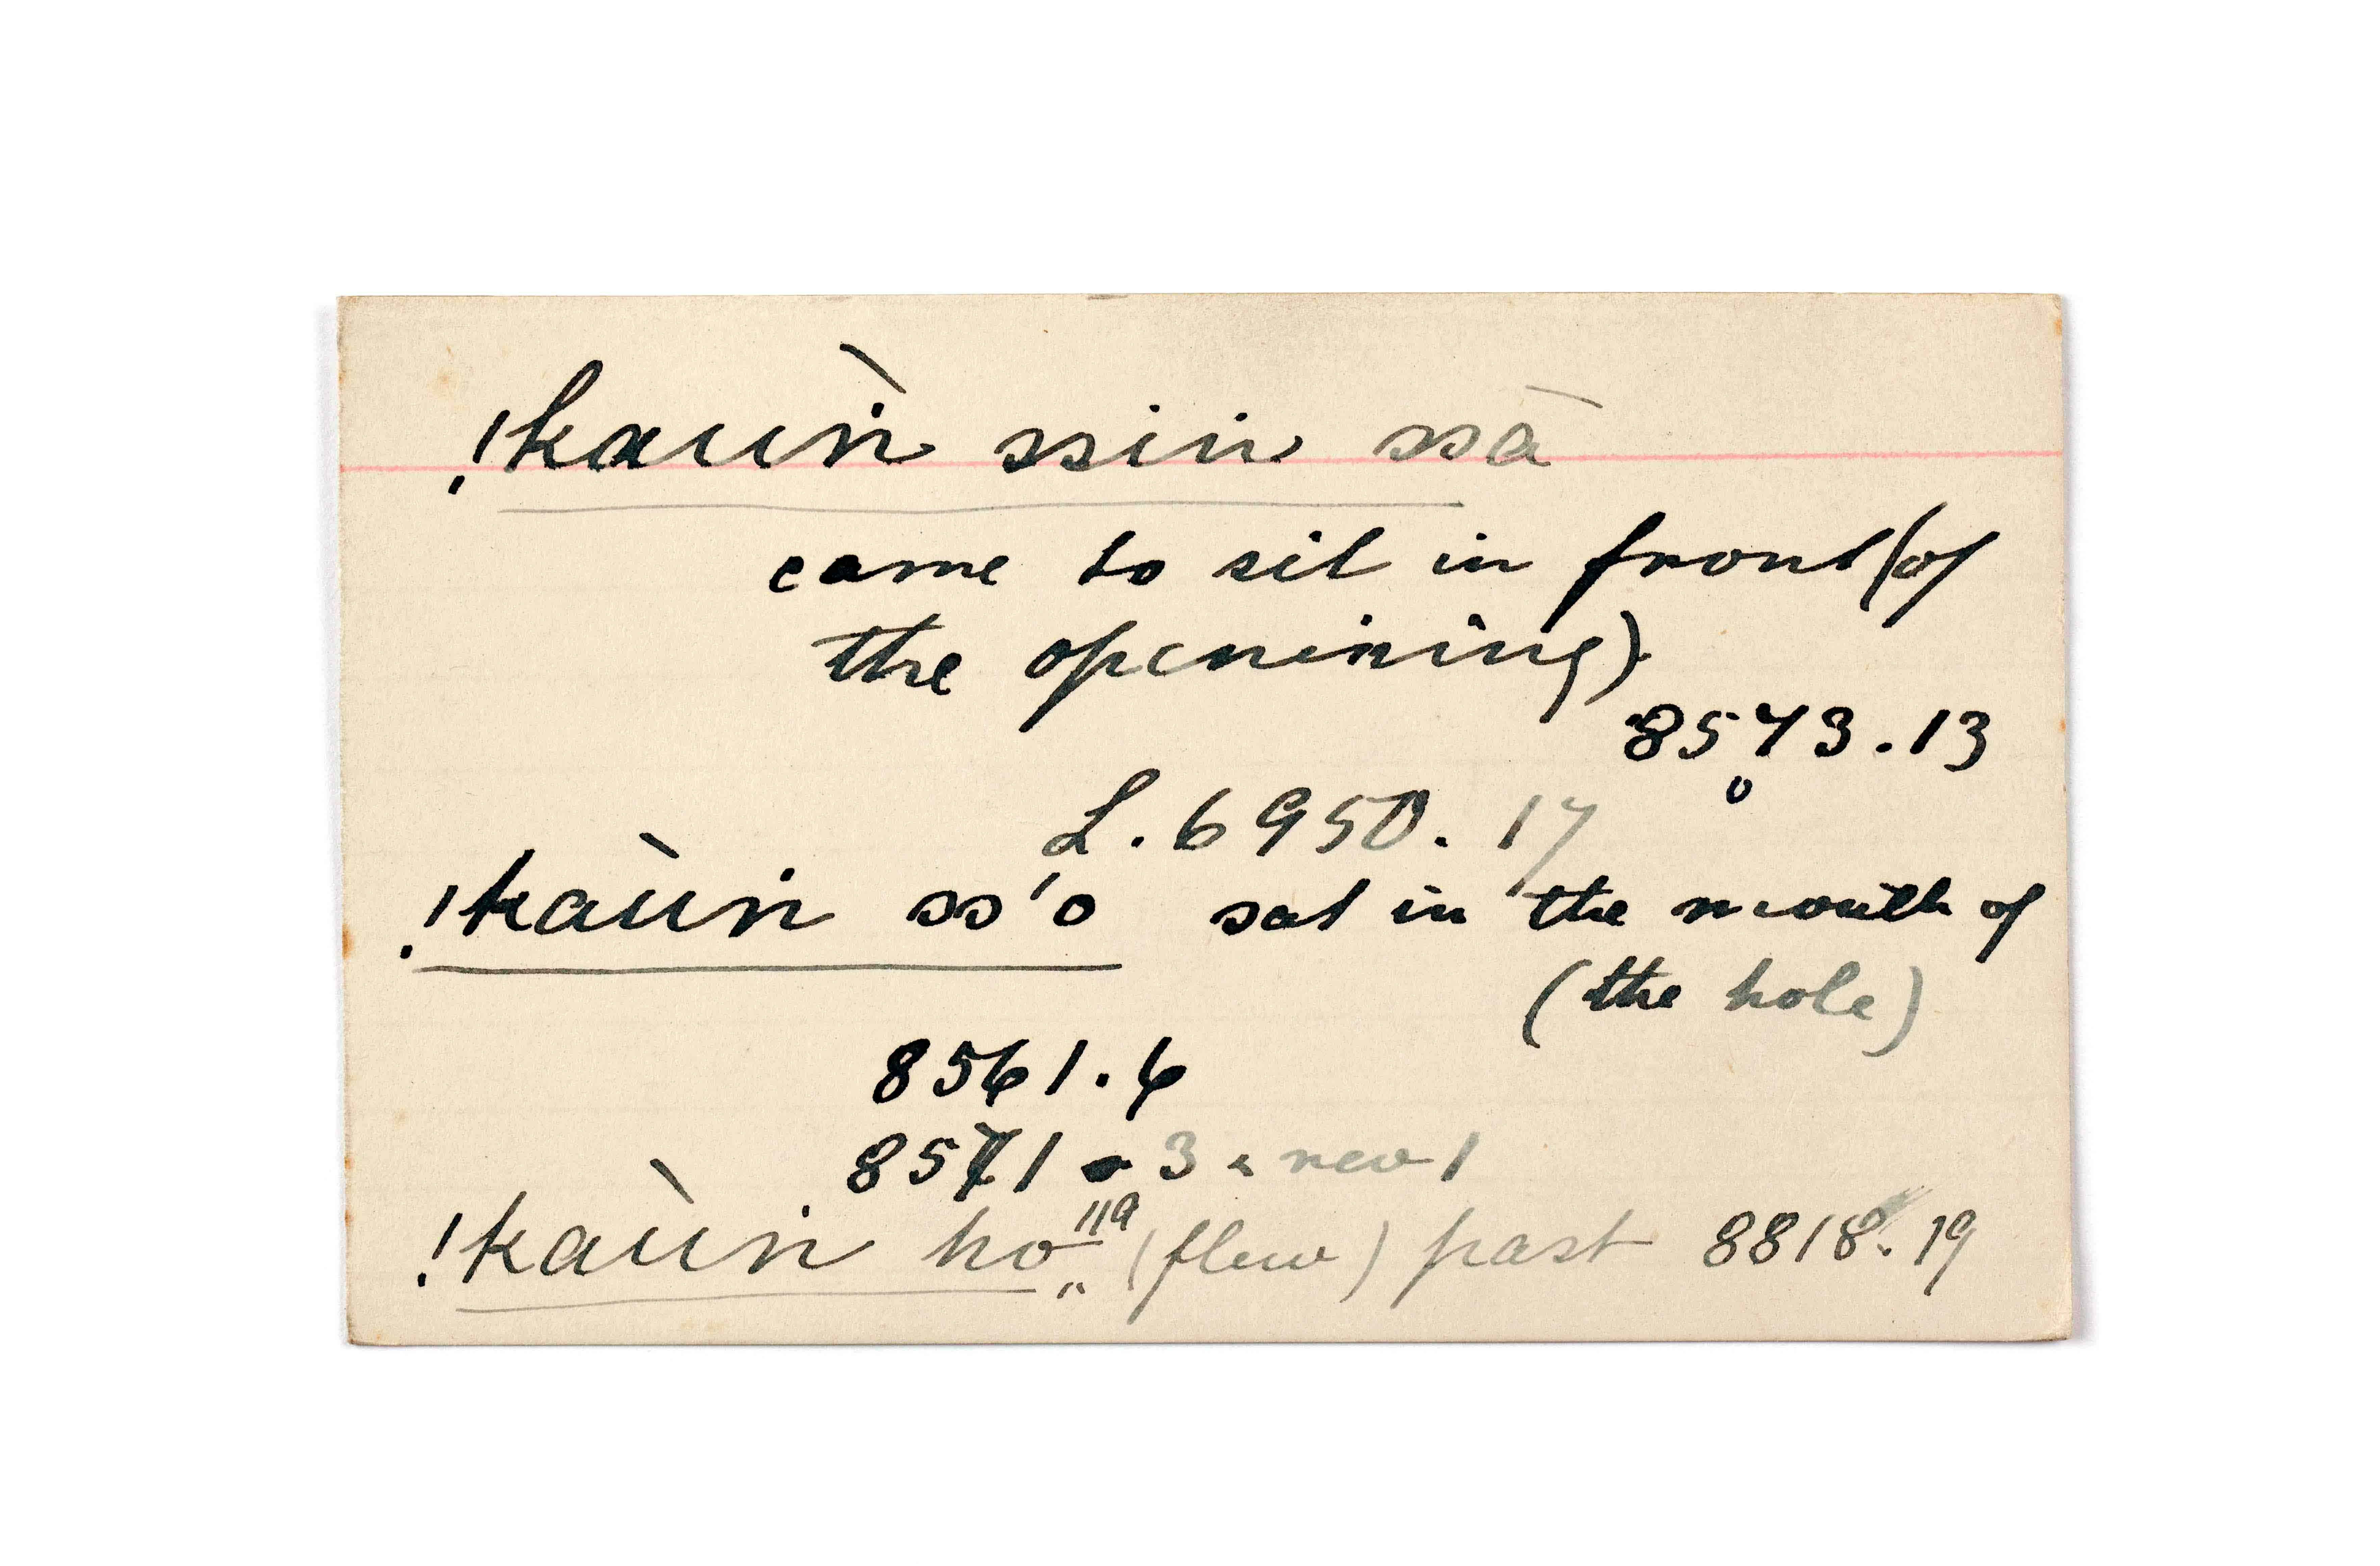 !kaùṅ ssiṅ ssā
came to sit in front (of
the openining)
8573.13
L. 6950. 17
!kaùṅ ss'o sat in the mouth of
(the hole)
8561.6
8571 . 3. rev 1
!kaùṅ ho (flew) past 8818. 19